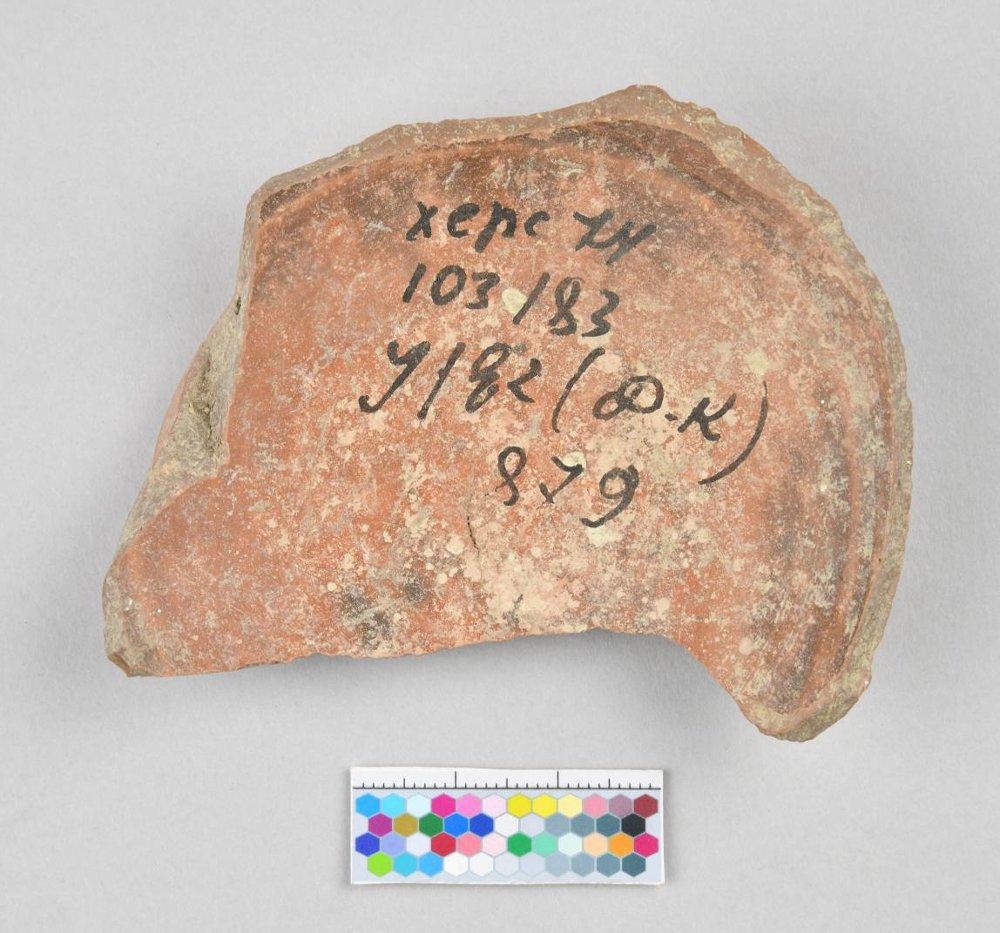 херс
103/83
У/82 (Ф.К)
879